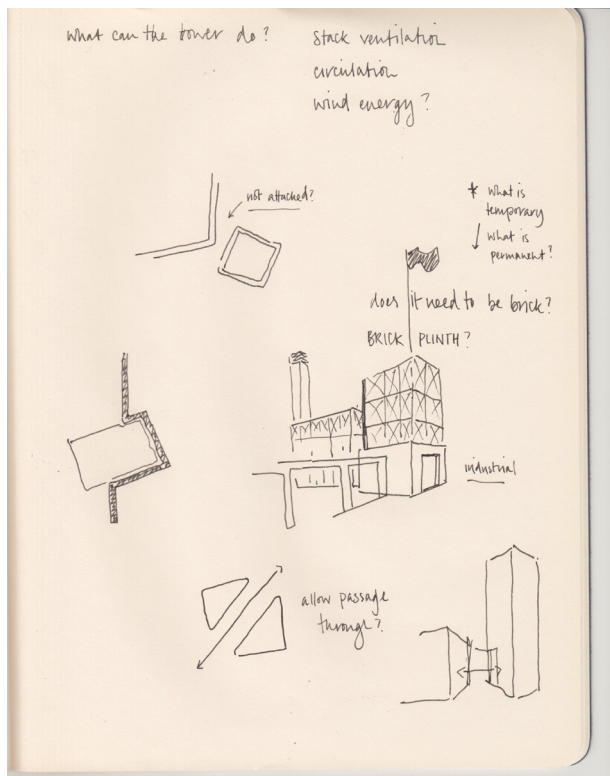 what can the tower do?
stack ventilation
circulation
wind energy?
not attached?
* what is
temporary
what is
permanent?
does it need to be brick?
BRICK PLINTH?
industrial
allow passage
through?